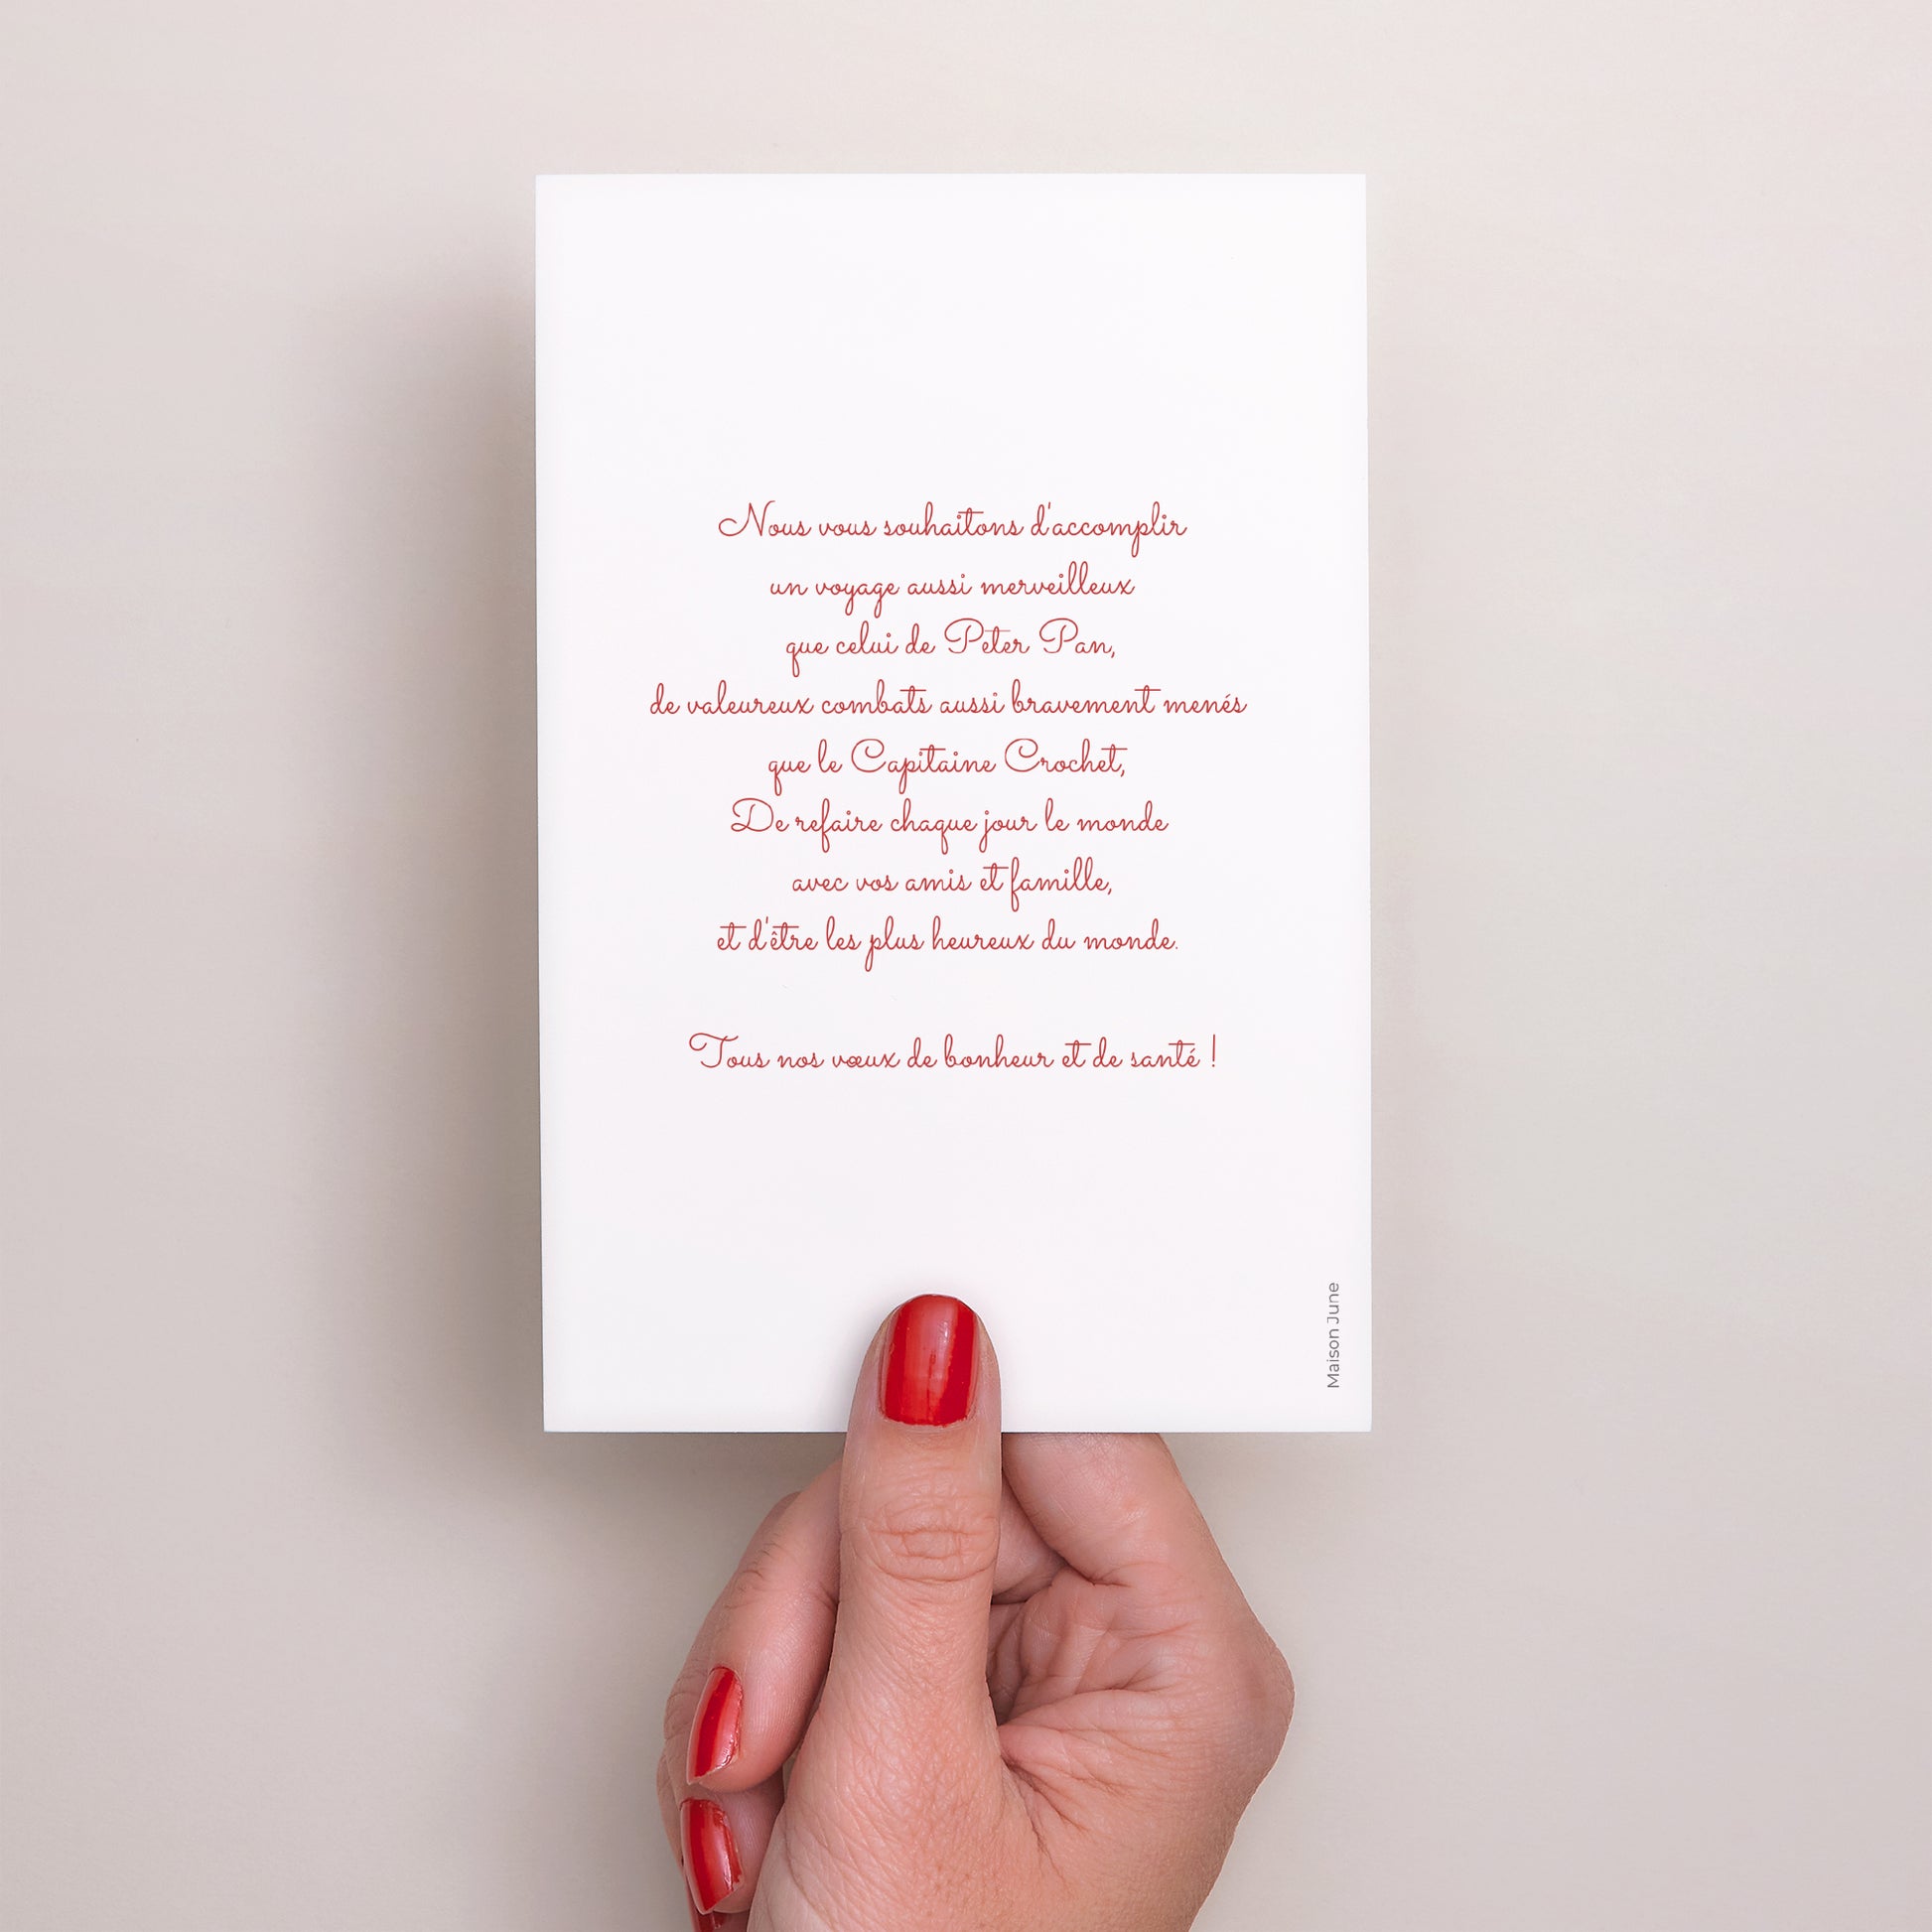 Nous vous souhaitons d'accomplir
un voyage aussi merveilleux
que celui de Peter Pan,
de valeureux combats aussi bravement menés
que le Capitaine Crochet,
De refaire chaque jour le monde
avec vos amis et famille,
et d'être les plus heureux du monde.
Tous nos vœux de bonheur et de santé !
Maison June